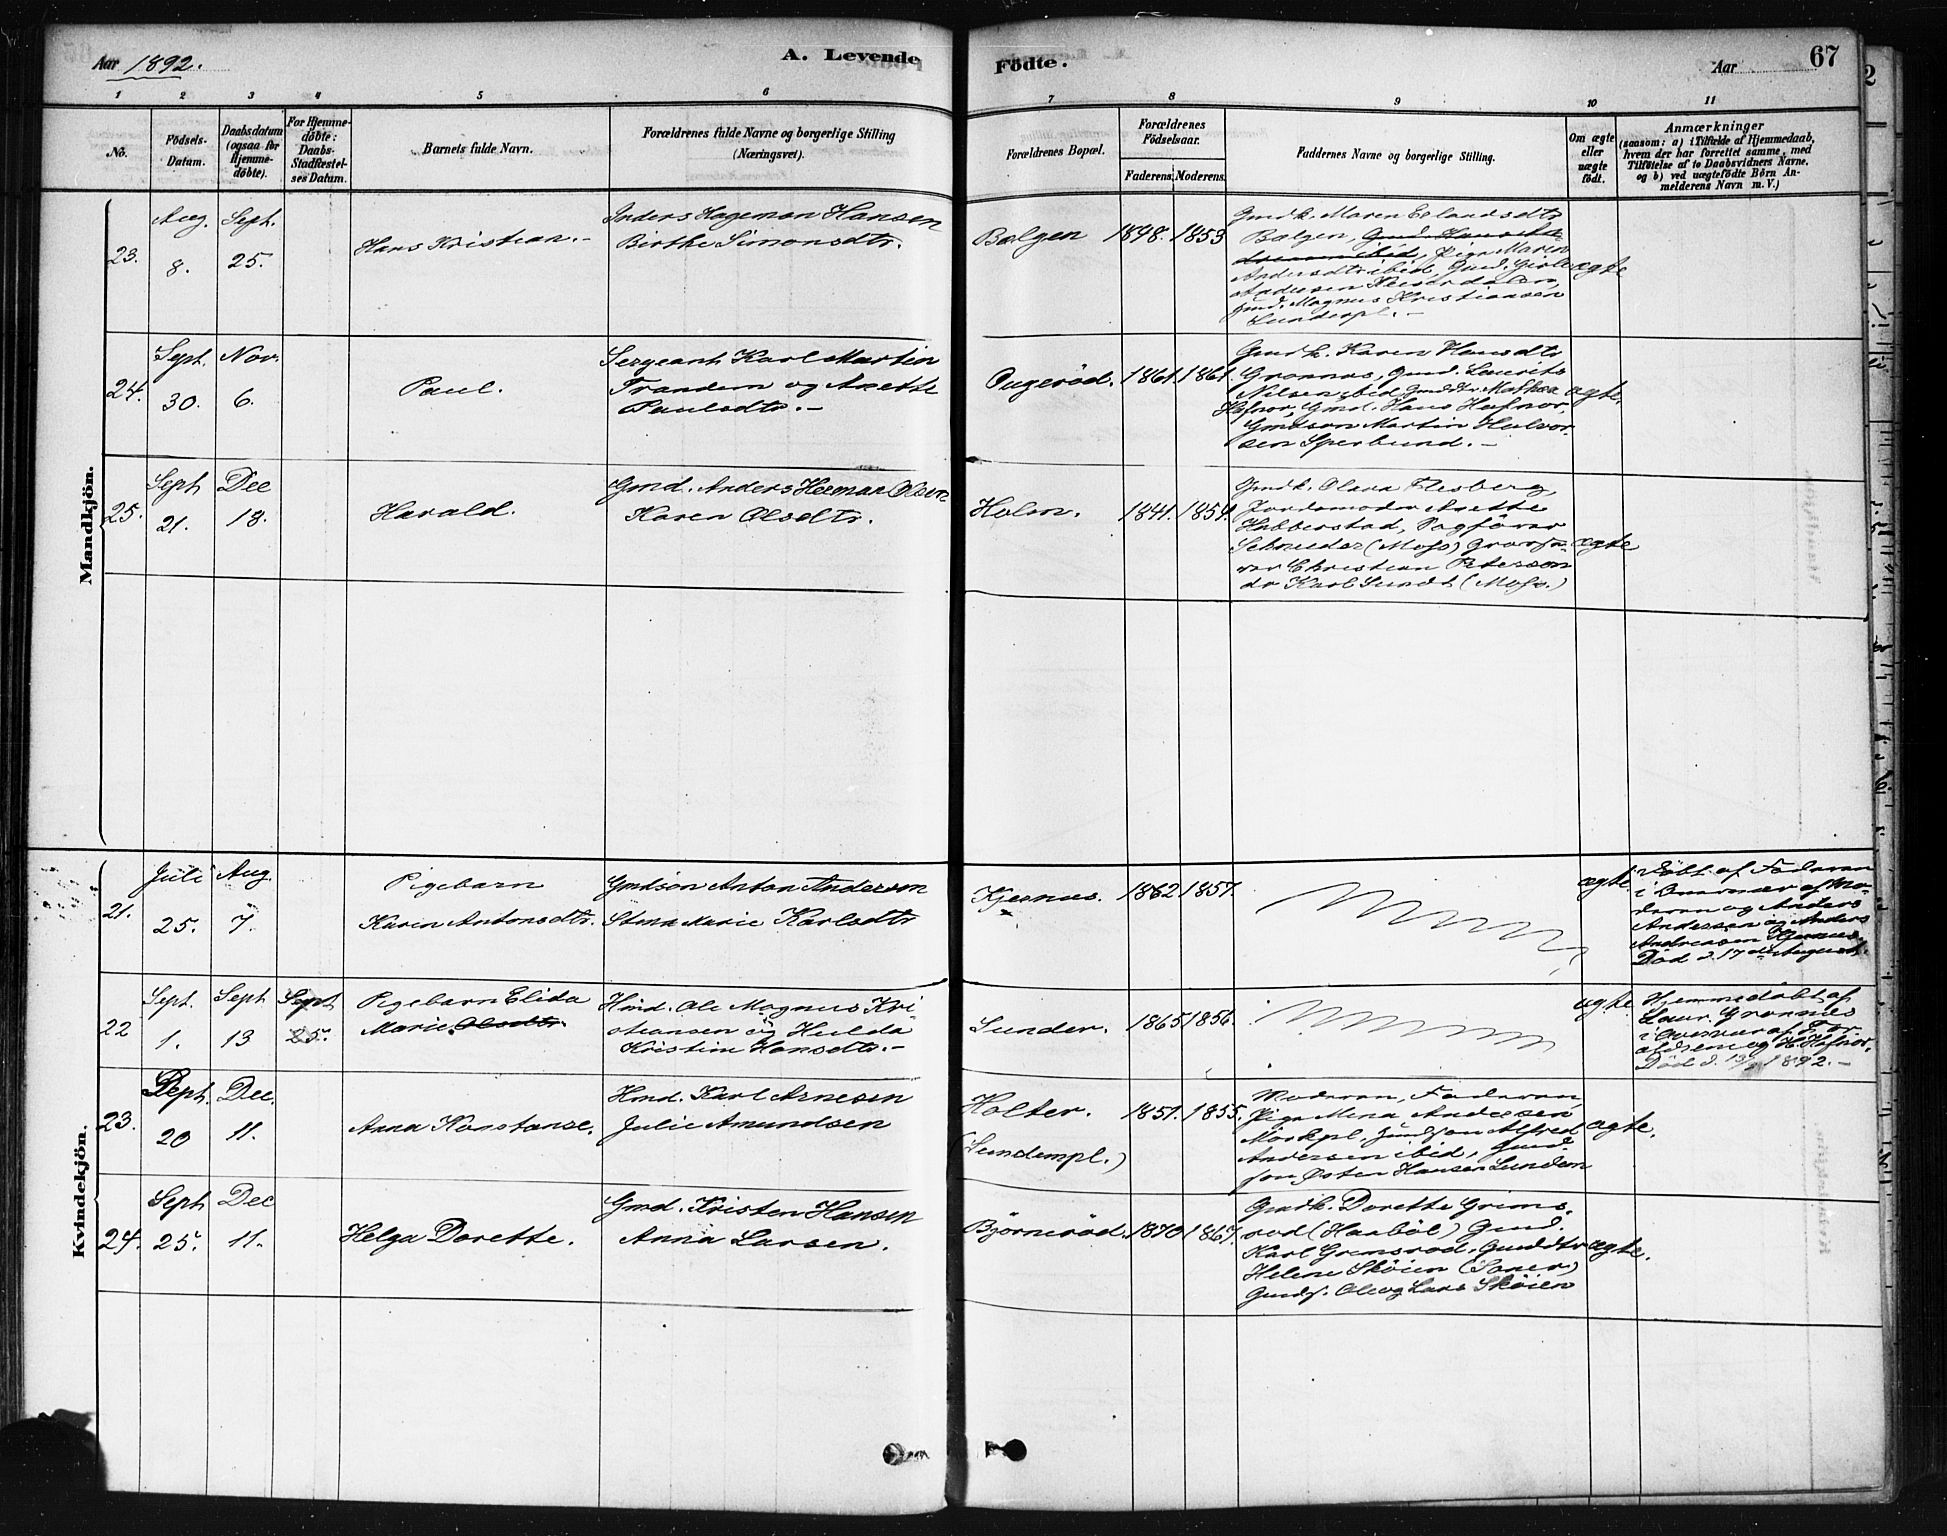 Aar 1892.
A. Levende
Födte.
Aar
67
1 2 3 4 5 6 7 8 9 10 11
No.
Födsels-
Datum.
Daabsdatum
(ogsaa for
Hjemme-
döbte).
For Hjemme-
döbte:
Daabs-
Stadfæstel-
ses Datum.
Barnets fulde Navn.
Forældrenes fulde Navne og borgerlige Stilling
(Næringsvei).
Forældrenes Bopæl.
Forældrenes
Födselsaar.
Faderens. Moderens.
Faddernes Navne og borgerlige Stilling.
Om ægte
eller
uægte
födt.
Anmærkninger
(saasom: a) i Tilfælde af Hjemmedaab,
hvem der har forrettet samme, med
Tilföielse af to Daabsvidners Navne,
og b) ved uægtefödte Börn An-
melderens Navn m. V.)
Mandkjön.
23.
Aug.
8.
Sept.
25.
Hans Kristian.-
Anders Hageman Hansen
Birthe Simonsdtr.
Bælgen
1848. 1853
Gmdk. Maren Erlandsdtr
Bælgen, Gmd. Hans
ibid, Pige Maren
Andersdtr ibid, Gmd.
Andersen
Gmd. Magnus Kristiansen
Lundenpl.-
ægte
24.
Sept.
30.
Nov.
6.
Paul.
Sergeant Karl Martin
Trandem og Anette
Paulsdtr.-
1861. 1861.
Gmdk. Karen Hansdtr
Grønnes, Gmd. Laurits
Nilsen ibid, Gmddtr. Mathea
Hafnor, Gmd. Hans Hafnor,
Gmdson Martin Halvor-
sen Sperbund.-
ægte.
25.
Sept
21.
Dec
18.
Harald.
Gmd. Anders Herman Olsen
Karen Olsdtr.
Holm.
1841. 1854.
Gmdk. Olava Flesberg,
Jordemoder Anette
Habberstad, Fogförer
Schneider (Moss)
Christian Petersen
do Karl Sundt (Moss.)
ægte
Kvindekjön.
21.
Juli
25.
Aug.
7.
Pigebarn
Karen Antonsdtr.
Gmdson Anton Anderson
Stina Marie Karlsdtr
Kjernes.
1862 1857.
ægte.
Døbt af Faderen
i Overvær af Mo-
deren og Anders
Andersen og Anders
Andreasen Kjernes.
Død d. 17de August.
22
Sept.
1.
Sept
13
Sept
25.
Pigebarn Elida
Marie Olsdtr.
Hmd. Ole Magnus Kri-
stiansen og Hulda
Kristine Hansdtr.-
Sunder.
1865 1856.
ægte
Hjemmedøbt af
Laur. Grønnes
i Overvær af For-
ældrene og H. Hafnor.
Død d. 13/9 1892.-
23.
Sept.
20
Dec.
11.
Anna Konstanse.
Hmd. Karl Arnesen
Julie Amundsen
Holter.
(Lundempl.)
1851. 1855.
Moderen, Faderen,
Pige Mina Andersen
Mörkpl. Gmdson Alfred
Andersen ibid, Gmd-
son Øster Hansen Lundem
ægte.
24.
Sept
25.
Dec
11.
Helga Dorette.
Gmd. Kristen Hansen
Anna Larsen.
Bjørnerød.
1870 1867.
Gmdk. Dorette Grims-
rød (Haabøl) Gmd.
Karl Grimsrød, Gmddtr
Helene Skøien (Soner)
Gmds. Ole og Lars Skøien
ægte.